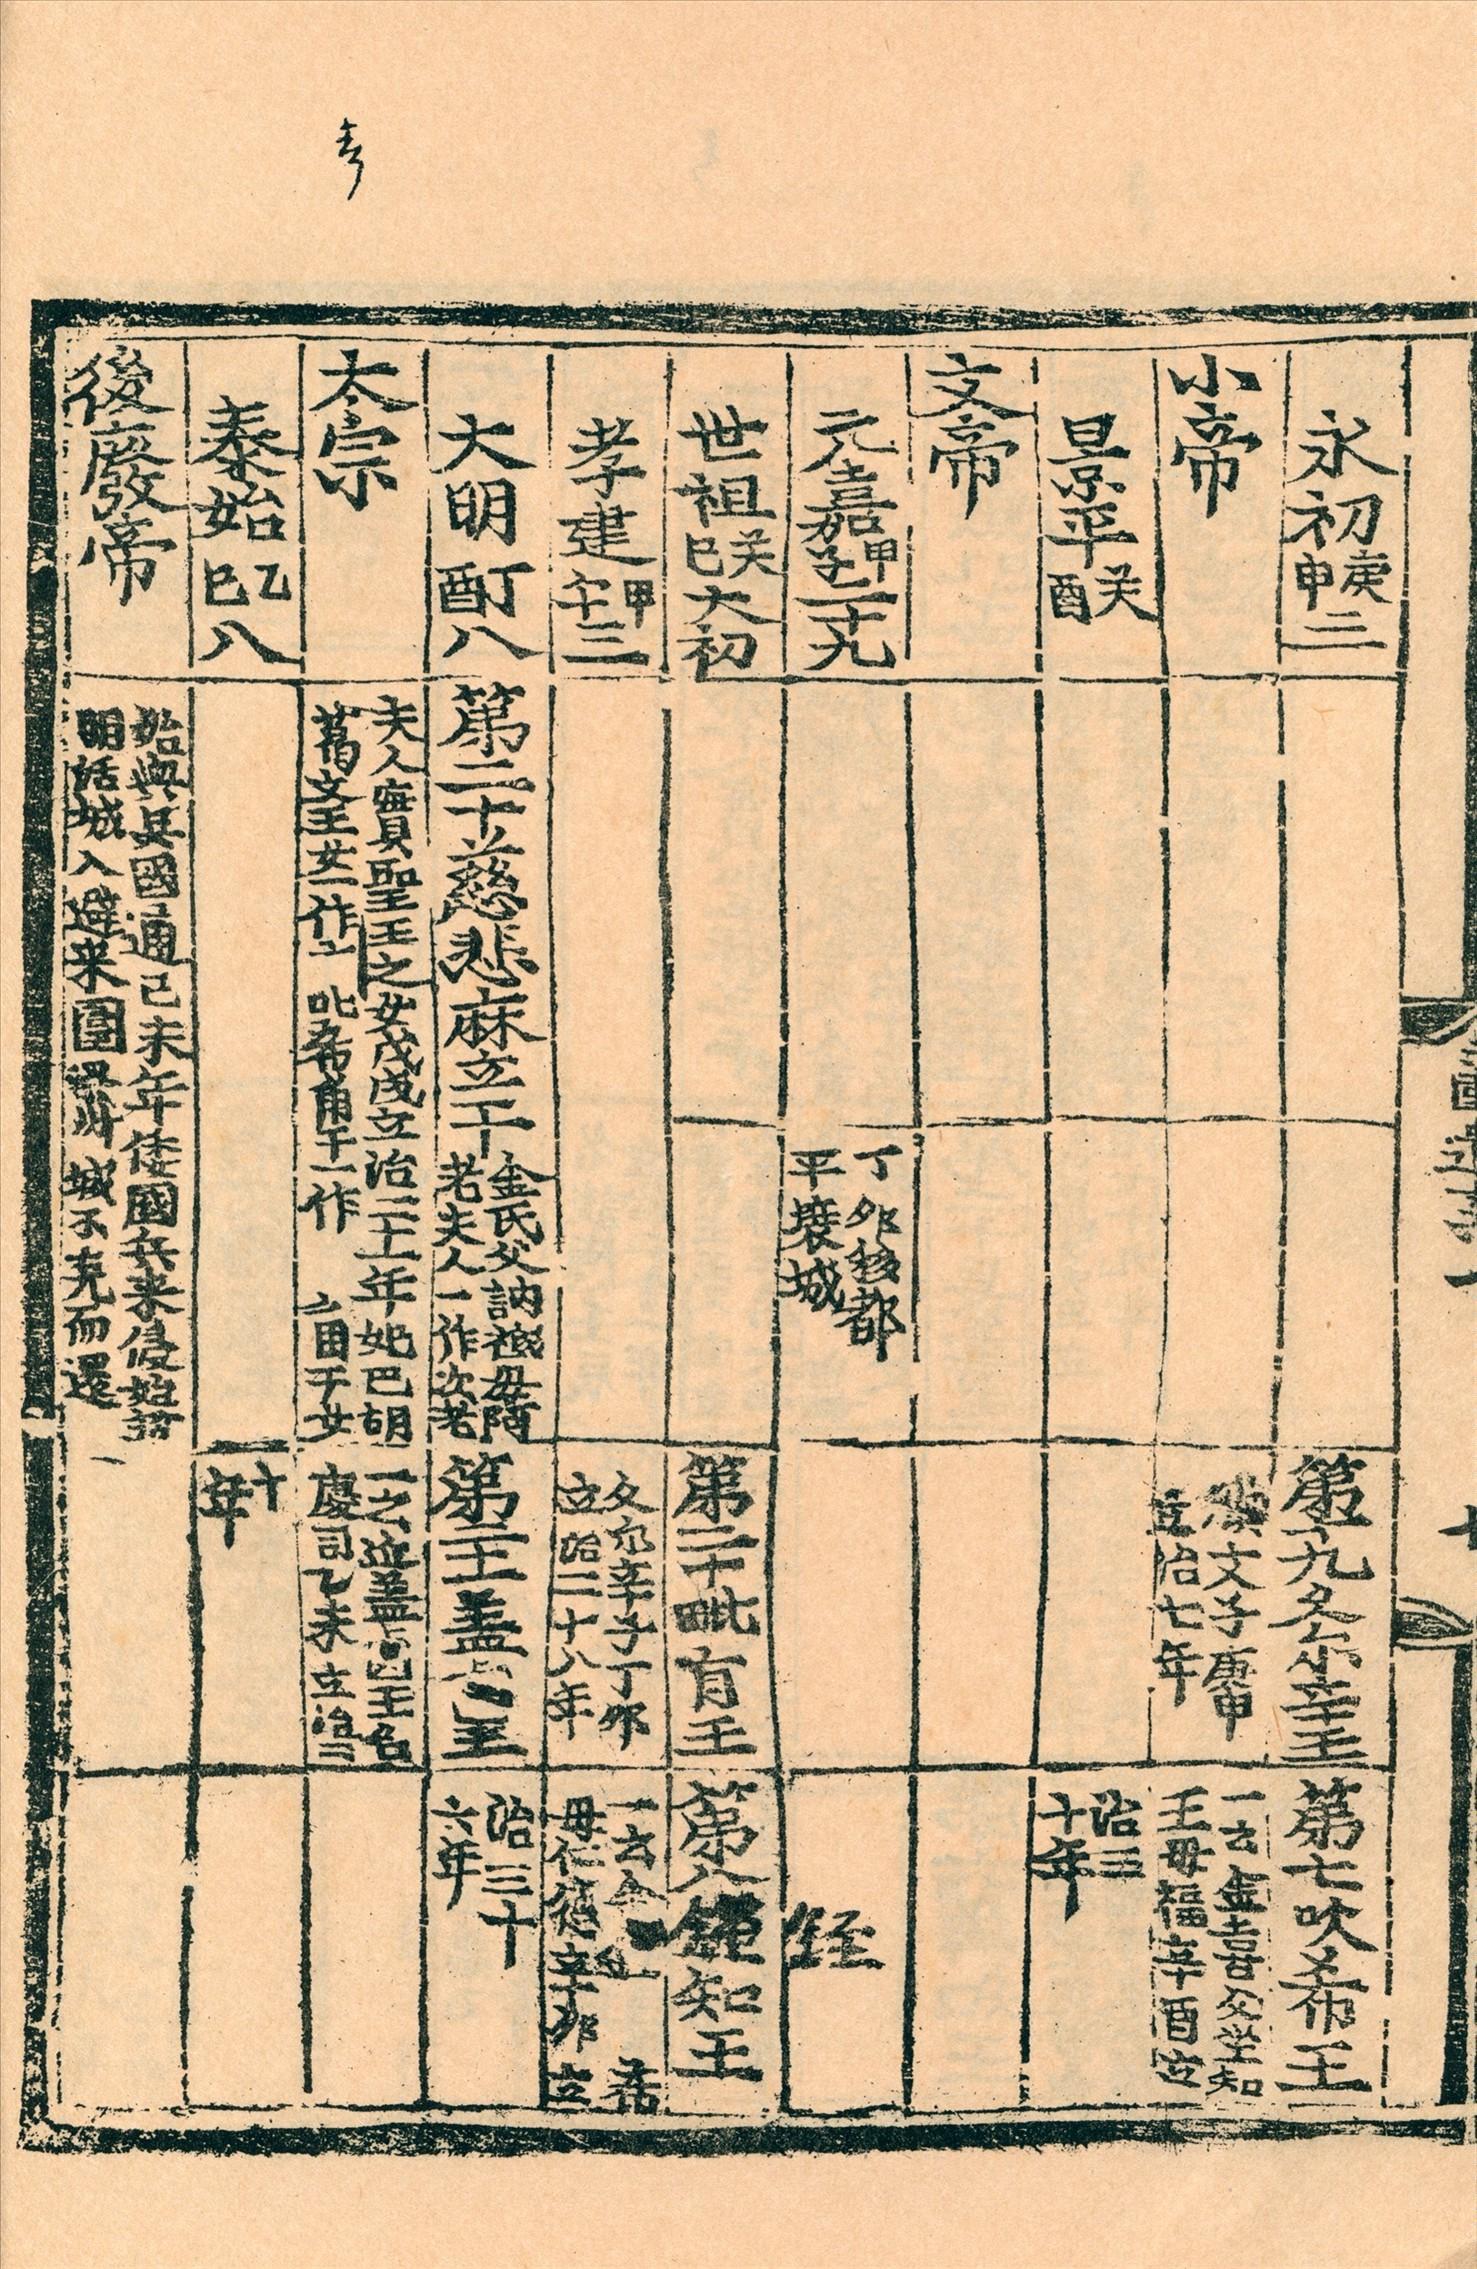 永初庚申三
小帝
景平癸酉
文帝
元嘉甲子二十九
世祖癸巳大初
孝建甲午三
大明丁酉八
太宗
泰始乙巳八
後廢帝
第二十慈悲麻立干
金氏父訥祗母阿
老夫人一作次老
夫人實聖王之女戊戌立治二十一年妃巴胡
葛文王女一作 叱希角干一作 角干女
始與吳國通己未年倭國兵來侵始築
明活城入避來圍梁州城不克而還
丁卯移都
平壤城
第十九久尒辛王
腆支子庚申
立治七年
第二十毗有王
久尒辛子丁卯
立治二十八年
第二十一盖鹵王
一云近盖鹵王名
慶司乙未立治二
十
年
第七吹希王
一云金喜父坐知
王母福辛酉立
治三
十年
第八銍知王
銍
一云金
母仁德辛卯立
治三十
六年